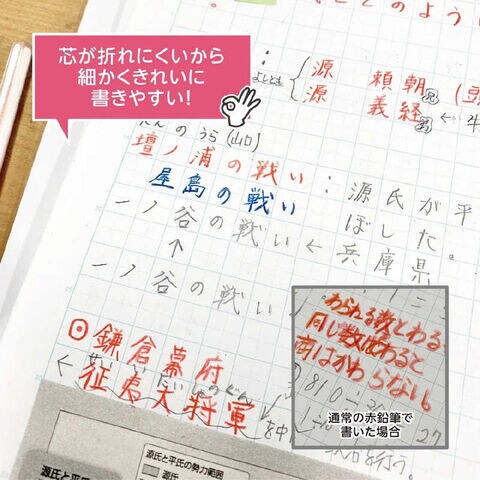 芯が折れにくいから
細かくきれいに
書きやすい!
とのよう
よしとも
源 頼朝 兄
源 義経 弟 ←
だんのうら(山口)
壇ノ浦の戦い:源氏が平
屋島の戦い ぼした。
一ノ谷の戦い←兵庫県
↑
一ノ谷の戦い
◎鎌倉幕府
せいいたいしょうぐん
←征夷大将軍
を中
わられる数とわる
同じ数でわると
商はかわらない。
810÷30
27
を行う。
通常の赤鉛筆で
書いた場合
源氏と平氏の勢力範囲
源氏
源氏と平氏の